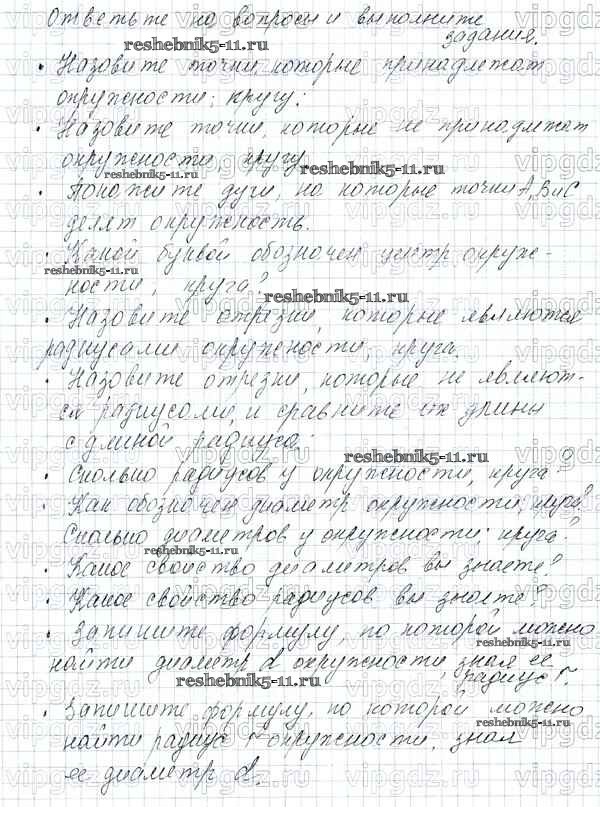 Ответьте на вопросы и выполните
задания.
reshebnik5-11.ru
• Назовите точки, которые принадлежат
окружности; кругу;
• Назовите точки, которые не принадлежат
окружности, кругу
reshebnik5-11.ru
reshebnik5-11.ru
• Покажите дуги, на которые точки А, В и С
делят окружность.
• Какой буквой обозначен центр окруж-
reshebnik5-11.ru
ности; круга?
reshebnik5-11.ru
• Назовите отрезки, которые являются
радиусами окружности; круга.
• Назовите отрезки, которые не являют-
ся радиусами, и сравните их длины
с длиной радиуса.
reshebnik5-11.ru
• Сколько радиусов у окружности, круга?
• Как обозначен диаметр окружности, круга?
Сколько диаметров у окружности; круга?
reshebnik5-11.ru
• Какое свойство диаметров вы знаете?
• Какое свойство радиусов вы знаете?
• Запишите формулу, по которой можно
reshebnik5-11.ru
найти диаметр d окружности, зная ее
радиус r.
reshebnik5-11.ru
• Запишите формулу, по которой можно
reshebnik5-11.ru
найти радиус r окружности, зная
ее диаметр d.